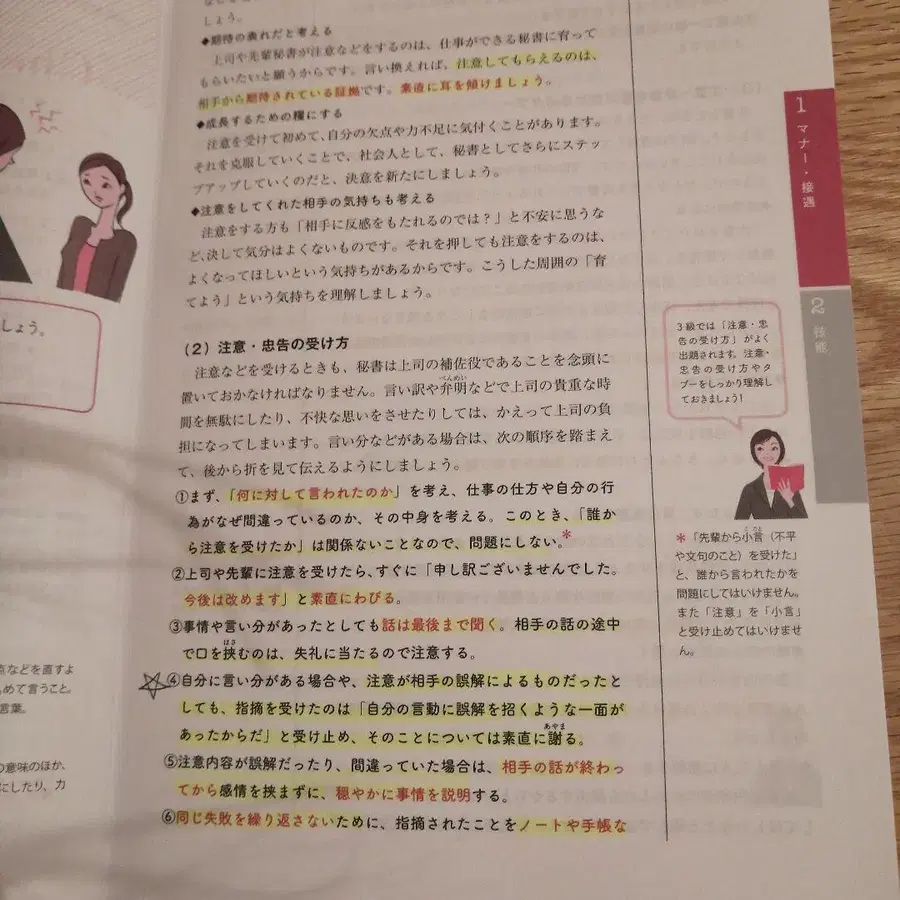 しょう。
◆期待の表れだと考える
上司や先輩秘書が注意などをするのは、仕事ができる秘書に育って
もらいたいと願うからです。言い換えれば、注意してもらえるのは、
相手から期待されている証拠です。素直に耳を傾けましょう。
◆成長するための糧にする
注意を受けて初めて、自分の欠点や力不足に気付くことがあります。
それを克服していくことで、社会人として、秘書としてさらにステッ
プアップしていくのだと、決意を新たにしましょう。
◆注意をしてくれた相手の気持ちも考える
注意をする方も「相手に反感をもたれるのでは?」と不安に思うな
ど、決して気分はよくないものです。それを押しても注意をするのは、
よくなってほしいという気持ちがあるからです。こうした周囲の「育
てよう」という気持ちを理解しましょう。
(2)注意・忠告の受け方
注意などを受けるときも、秘書は上司の補佐役であることを念頭に
置いておかなければなりません。言い訳や弁明などで上司の貴重な時
べんめい
間を無駄にしたり、不快な思いをさせたりしては、かえって上司の負
担になってしまいます。言い分などがある場合は、次の順序を踏まえ
て、後から折を見て伝えるようにしましょう。
①まず、「何に対して言われたのか」を考え、仕事の仕方や自分の行
為がなぜ間違っているのか、その中身を考える。このとき、「誰か
ら注意を受けたか」は関係ないことなので、問題にしない。*
②上司や先輩に注意を受けたら、すぐに「申し訳ございませんでした。
今後は改めます」と素直にわびる。
③事情や言い分があったとしても話は最後まで聞く。相手の話の途中
で口を挟むのは、失礼に当たるので注意する。
はさ
④自分に言い分がある場合や、注意が相手の誤解によるものだったと
しても、指摘を受けたのは「自分の言動に誤解を招くような一面が
あったからだ」と受け止め、そのことについては素直に謝る。
あやま
⑤注意内容が誤解だったり、間違っていた場合は、相手の話が終わっ
てから感情を挟まずに、穏やかに事情を説明する。
⑥同じ失敗を繰り返さないために、指摘されたことをノートや手帳な
1 マナー・接遇
2 技能
3級では「注意・忠
告の受け方」がよく
出題されます。注意・
忠告の受け方やタ
ブーをしっかり理解し
ておきましょう!
*「先輩から小言(不平
こごと
や文句のこと)を受けた」
と、誰から言われたかを
問題にしてはいけません。
また「注意」を「小言」
と受け止めてはいけませ
ん。
しょう。
点などを直すよ
めて言うこと。
言葉。
の意味のほか、
にしたり、力